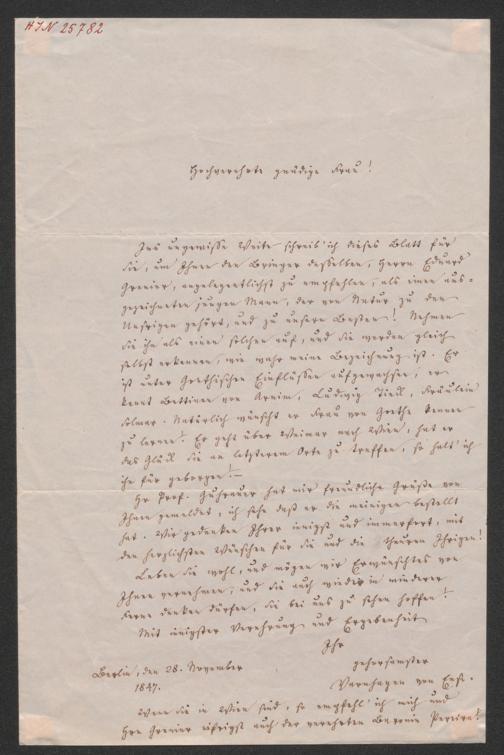 HIN 25782
Hochverehrte gnädige Frau!
Ins ungewisse Weite schreib' ich dieses Blatt für
Sie, um Ihnen den Bringer desselben, Herrn Eduard
Grenier, angelegentlichst zu empfehlen, als einen aus-
gezeichneten jungen Mann, der von Natur zu den
Unsrigen gehört, und zu unsern Besten! Nehmen
Sie ihn als einen solchen auf, und Sie werden gleich
selbst erkennen, wie wahr meine Bezeichnung ist. Er
ist unter Goethischen Einflüssen aufgewachsen, er
kennt Bettinen von Arnim, Ludwig Tieck, Fräulein
Solmar. Natürlich wünscht er Frau von Goethe kennen
zu lernen! Er geht über Weimar nach Wien, hat er
das Glück Sie an letzterem Orte zu treffen, so halt' ich
ihn für geborgen! —
Hr Prof. Guhrauer hat mir freundliche Grüße von
Ihnen gemeldet, ich sehe daß er die meinigen bestellt
hat. Wir gedenken Ihrer innigst und immerfort, mit
den herzlichsten Wünschen für Sie und die theuren Ihrigen!
Leben Sie wohl, und mögen wir Erwünschtes von
Ihnen vernehmen, und Sie auch wieder in minderer
Ferne denken dürfen, Sie bei uns zu sehen hoffen!
Mit innigster Verehrung und Ergebenheit
Ihr
gehorsamster
Varnhagen von Ense.
Berlin, den 28. November
1847.
Wenn Sie in Wien sind, so empfehl' ich mich und
Hrn Grenier eifrigst auch der verehrten Baronin Pereira!